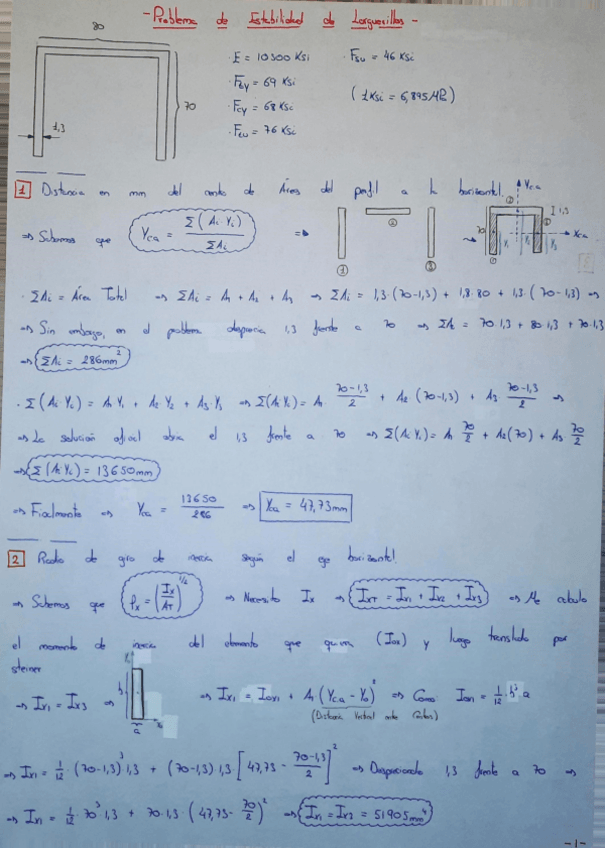 - Problema de Estabilidad de Larguerillos -
80
70
1,3
· E = 10300 Ksi
· Fty = 69 Ksi
· Fcy = 68 Ksi
· Ftu = 76 Ksi
· Fsu = 46 Ksi
(1 Ksi = 6,895 MPa)
1 Distancia en mm del centro de Áreas del perfil a la horizontal.
⇒ Sabemos que Yca = Σ(Ai·Yi) / ΣAi ⇒
① ② ③
Yca
Xca
1,3
70
· ΣAi = Área Total ⇒ ΣAi = A1 + A2 + A3 ⇒ ΣAi = 1,3·(70-1,3) + 1,8·80 + 1,3·(70-1,3) ⇒
⇒ Sin embargo, en el problema desprecia 1,3 frente a 70 ⇒ ΣAi = 70·1,3 + 80·1,3 + 70·1,3
⇒ ΣAi = 286mm²
· Σ(Ai·Yi) = A1·Y1 + A2·Y2 + A3·Y3 ⇒ Σ(Ai·Yi) = A1·(70-1,3)/2 + A2(70-1,3) + A3·(70-1,3)/2 ⇒
⇒ La solución oficial obvia el 1,3 frente a 70 ⇒ Σ(Ai·Yi) = A1 70/2 + A2(70) + A3 70/2
⇒ Σ(Ai·Yi) = 13650mm
⇒ Finalmente ⇒ Yca = 13650/286 ⇒ Yca = 47,73mm
2 Radio de giro de inercia según el eje horizontal.
⇒ Sabemos que ρx = (Ix/AT)^1/2 ⇒ Necesito Ix ⇒ IxT = Ix1 + Ix2 + Ix3 ⇒ Me calculo
el momento de inercia del elemento que quiera (Iox) y luego traslado por
steiner
⇒ Ix1 = Ix3 ⇒
h
a
⇒ Ix1 = Iox1 + A1(Yca - Yo)² ⇒ Como Iox1 = 1/12·h³·a
(Distancia Vertical entre Centros)
⇒ Ix1 = 1/12·(70-1,3)³·1,3 + (70-1,3)·1,3·[47,73 - (70-1,3)/2]² ⇒ Despreciando 1,3 frente a 70 ⇒
⇒ Ix1 = 1/12·70³·1,3 + 70·1,3·(47,73 - 70/2)² ⇒ Ix1 = Ix3 = 51905mm⁴
-1-